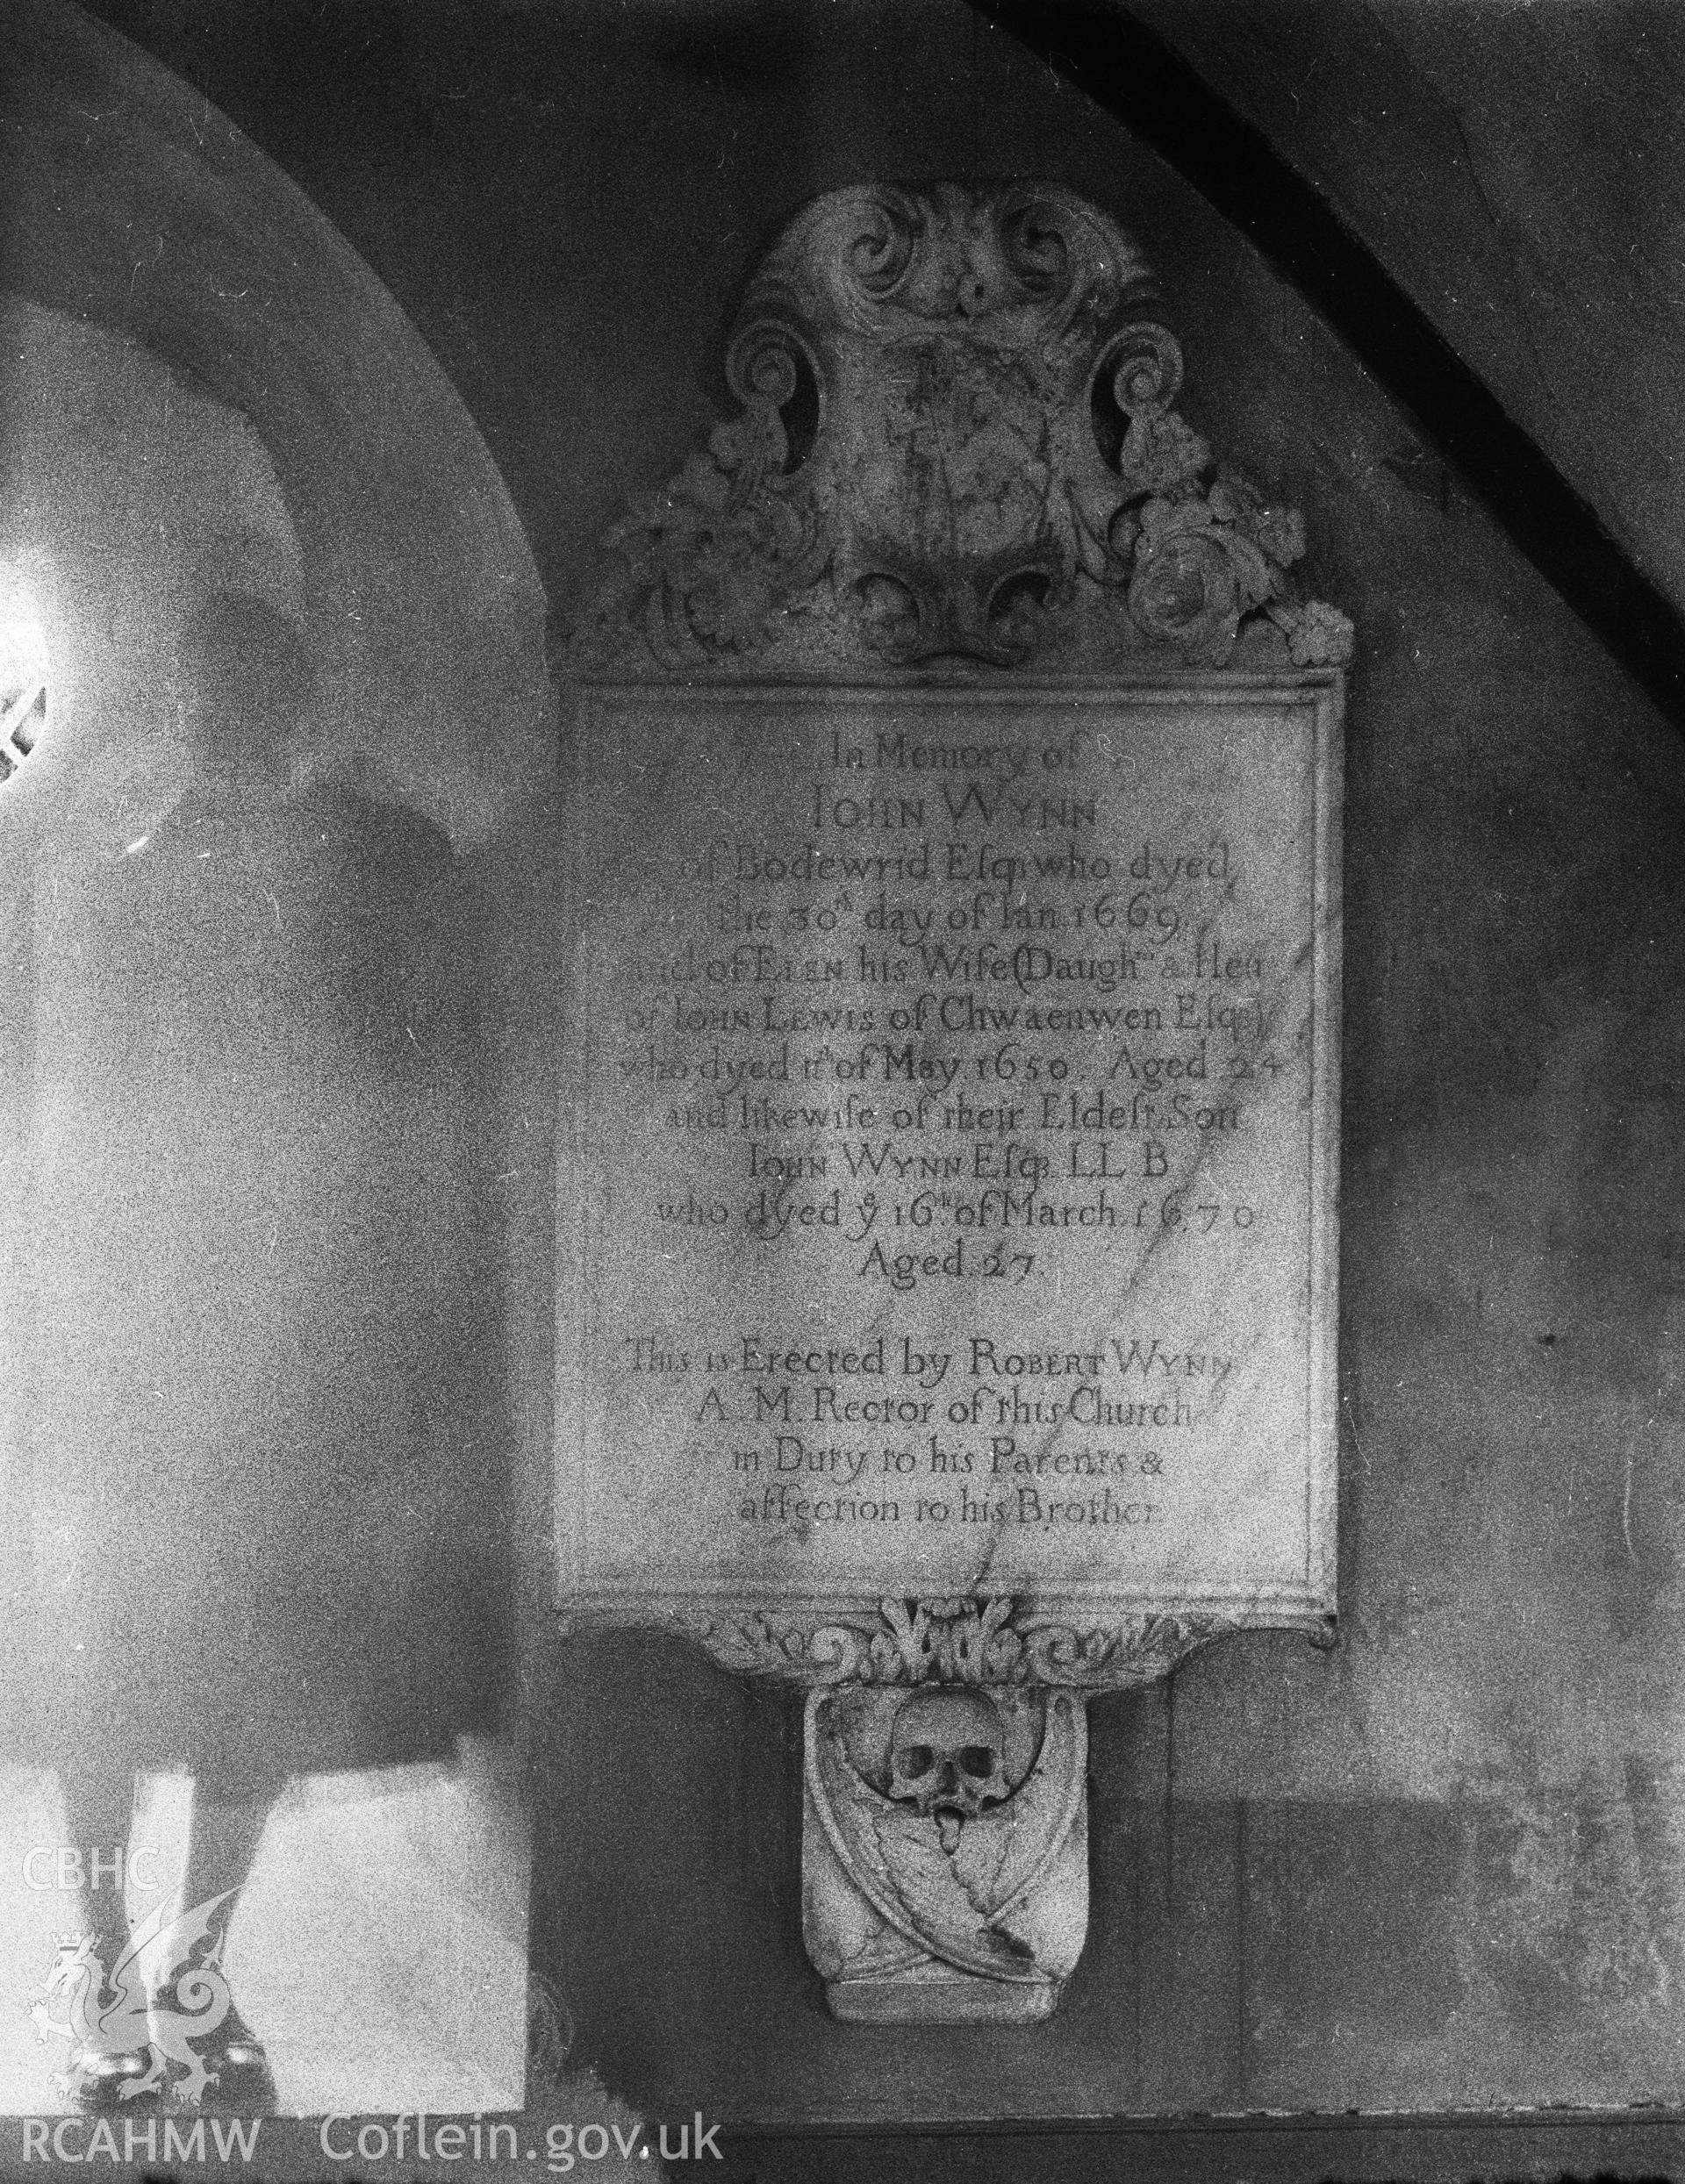 In Memory of
IOHN WYNN
of Bodewrid Eſqr who dyed
the 30th day of Ian. 1669.
and of ELEN his Wife (Daughtr & Heir
of IOHN LEWIS of Chwaenwen Eſqr)
who dyed 11th of May. 1650. Aged 24
and likewiſe of their Eldeſt Son
IOHN WYNN Eſqr. LL B
who dyed ye 16th of March. 1670
Aged. 27.
This is Erected by ROBERT WYNN
A. M. Rector of this Church
in Duty to his Parents &
affection to his Brother
CBHC
RCAHMW Coflein.gov.uk